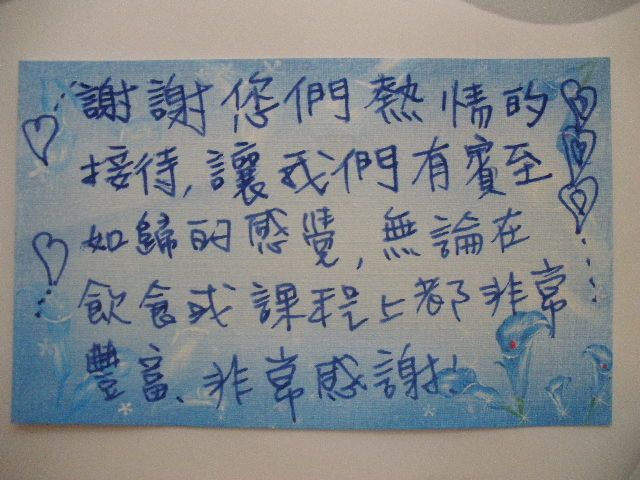 謝謝您們熱情的
接待,讓我們有賓至
如歸的感覺,無論在
飲食或課程上都非常
豐富、非常感謝!